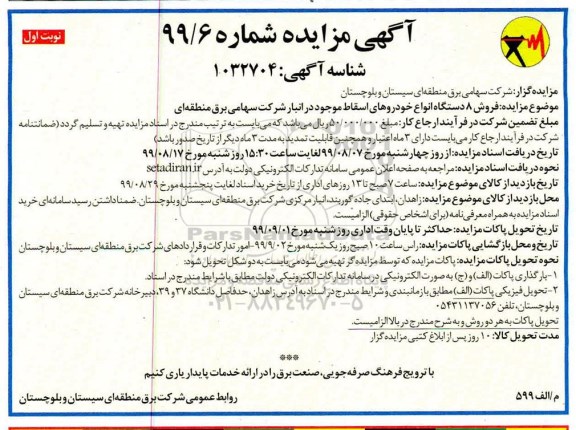 آگهی مزایده شماره ۹۹/۶
نوبت اول
شناسه آگهی: ۱۰۳۲۷۰۴
مزایده گزار: شرکت سهامی برق منطقه‌ای سیستان و بلوچستان
موضوع مزایده: فروش ۸ دستگاه انواع خودروهای اسقاط موجود در انبار شرکت سهامی برق منطقه‌ای
مبلغ تضمین شرکت در فرآیند ارجاع کار: مبلغ ۵۰/۰۰۰/۰۰۰ ریال می‌باشد که می‌بایست به ترتیب مندرج در اسناد مزایده تهیه و تسلیم گردد (ضمانتنامه
شرکت در فرآیند ارجاع کار می‌بایست دارای ۳ ماه اعتبار و همچنین قابلیت تمدید به مدت ۳ ماه دیگر از تاریخ صدور باشد)
تاریخ دریافت اسناد مزایده: از روز چهارشنبه مورخ ۹۹/۰۸/۰۷ لغایت ساعت ۱۵:۳۰ روز شنبه مورخ ۹۹/۰۸/۱۷
نحوه دریافت اسناد مزایده: مراجعه به صفحه اعلان عمومی سامانه تدارکات الکترونیکی دولت به آدرس setadiran.ir
تاریخ بازدید از کالای موضوع مزایده: ساعت ۷ صبح تا ۱۳ روزهای اداری از تاریخ خرید اسناد لغایت پنجشنبه مورخ ۹۹/۰۸/۲۹
محل بازدید از کالای موضوع مزایده: زاهدان، ابتدای جاده گوربند، انبار مرکزی شرکت برق منطقه‌ای سیستان و بلوچستان. ضمناً داشتن رسید سامانه‌ای خرید
اسناد مزایده به همراه معرفی نامه (برای اشخاص حقوقی) الزامیست.
تاریخ تحویل پاکات مزایده: حداکثر تا پایان وقت اداری روز شنبه مورخ ۹۹/۰۹/۰۱
تاریخ و محل بازگشایی پاکات مزایده: راس ساعت ۱۰ صبح روز یکشنبه مورخ ۹۹/۹/۰۲- امور تدارکات و قراردادهای شرکت برق منطقه‌ای سیستان و بلوچستان
نحوه تحویل پاکات مزایده: پاکات مزایده که توسط مزایده گر تهیه می‌شود می‌بایست به دو شکل تحویل شود:
۱-بارگذاری پاکات (الف) و (ج) به صورت الکترونیکی در سامانه تدارکات الکترونیکی دولت مطابق با شرایط مندرج در اسناد.
۲-تحویل فیزیکی پاکات (الف) مطابق با زمانبندی و شرایط مندرج در اسناد به آدرس زاهدان، حدفاصل دانشگاه ۳۷ و ۳۹، دبیرخانه شرکت برق منطقه‌ای سیستان
و بلوچستان، تلفن ۰۵۴۳۱۱۳۷۰۵۶
تحویل پاکات به هر دو روش و به شرح مندرج در بالا الزامیست.
مدت تحویل کالا: ۱۰ روز پس از ابلاغ کتبی مزایده گزار
***
با ترویج فرهنگ صرفه‌جویی، صنعت برق را در ارائه خدمات پایدار یاری کنیم
م/الف ۵۹۹
روابط عمومی شرکت برق منطقه‌ای سیستان و بلوچستان
۰۲۱-۸۸۳۴۹۶۷۰-۵